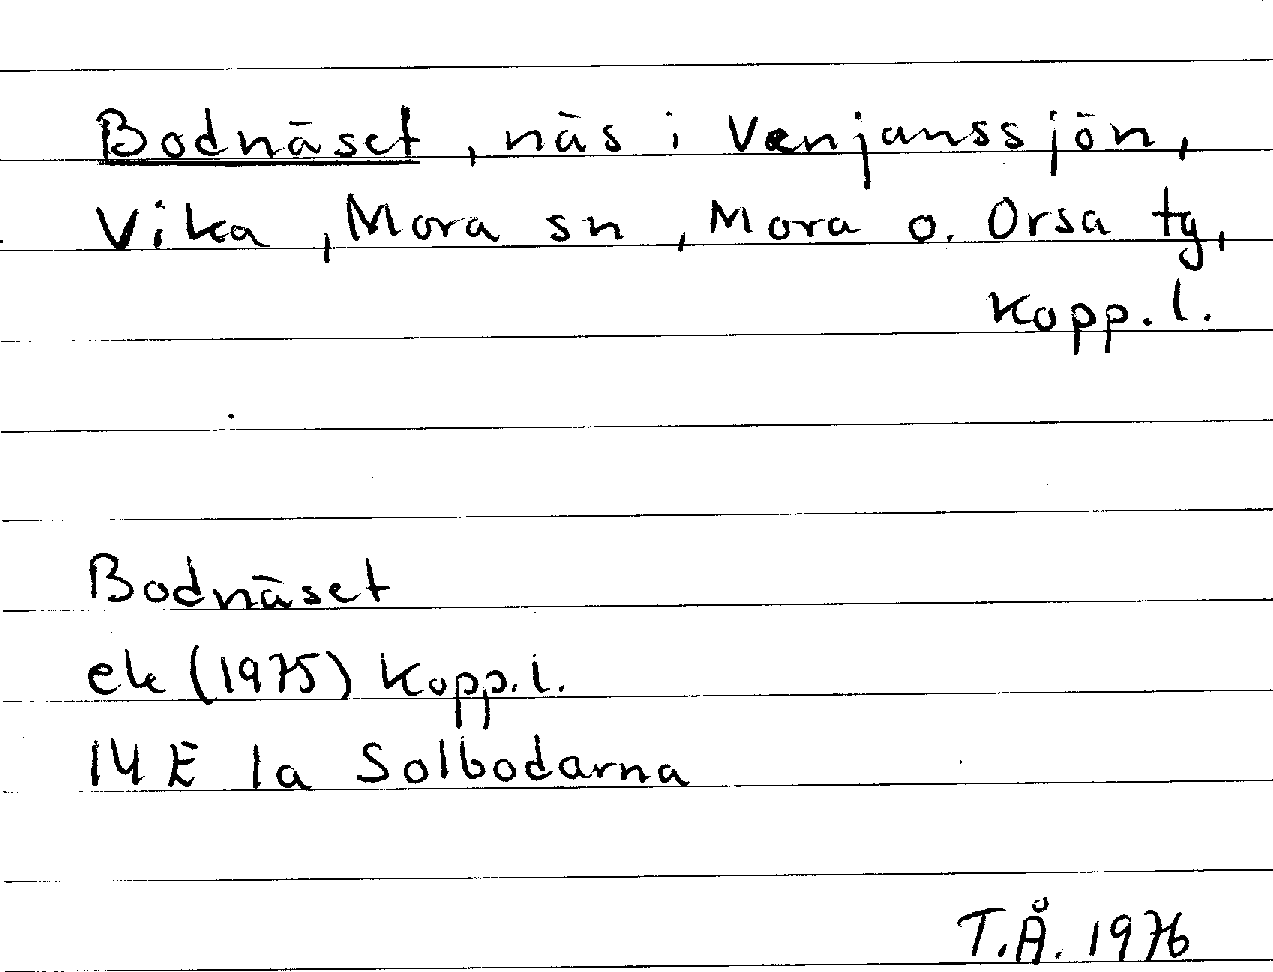 Bodnäset, näs i Venjanssjön,
Vika, Mora sn, Mora o. Orsa tg,
Kopp. l.
Bodnäset
ek (1975) Kopp. l.
14 E 1a Solbodarna
T.Å. 1976